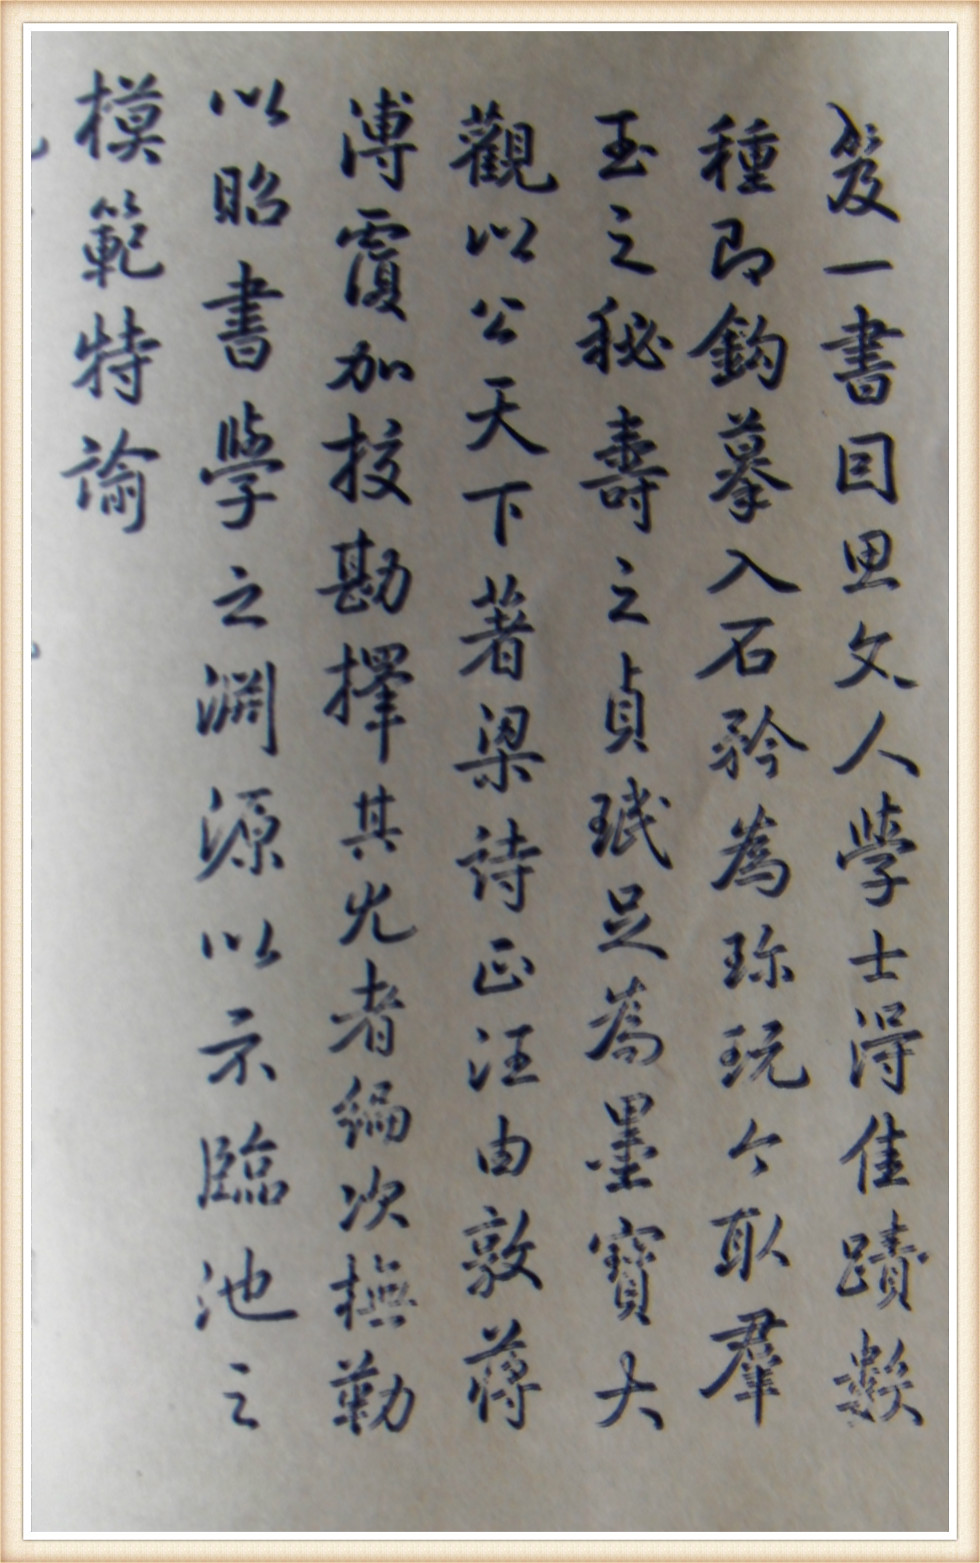 笈一書因思文人學士得佳蹟數
種即鈎摹入石矜為珎玩今取羣
玉之秘壽之貞珉足為墨寶大
觀以公天下著梁詩正汪由敦蔣
溥覆加挍勘擇其尤者編次橅勒
以昭書學之淵源以示臨池之
模範特諭